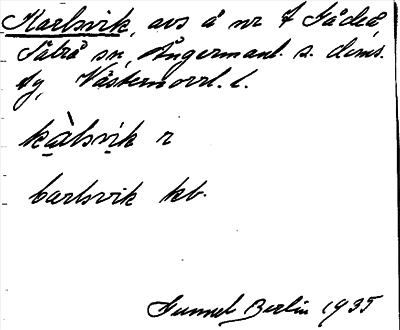 Karlsvik, avs å nr 7 Fåden,
Säbrå sn, Ångermanl. s. doms.
fg, Västernorrl. l.
kàlsvik r
karlsvik kb.
Gunnel Berlin 1935